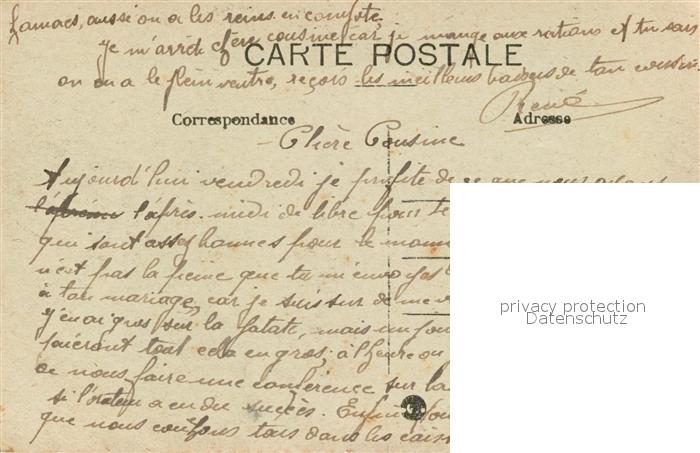 hamacs, aussi on a les reins en compote,
je m'arrête chère cousine car je mange aux rations et tu sais
CARTE POSTALE
on on a le plein ventre, reçois les meilleurs baisers de ton cousin
René
Correspondance
Adresse
Chère Cousine
Aujourd'hui vendredi je profite de ce que nous
l'après-midi de libre pour te
qui sont assez bonnes pour le
n'est pas la peine que tu m'envoyes
à ton mariage, car je suis sur de me
j'en ai gros sur la patate, mais un jour
tout cela en gros, à l'heure ou
de nous faire une conférence sur la
si l'orateur a eu du succès. Enfin
que nous tous dans les
privacy protection
Datenschutz